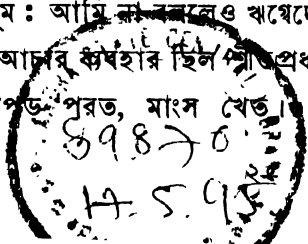 ম : আমি না বললেও ঋগ্বেদে
আচার ব্যবহার ছিল শীতপ্রধ
পড় পরত, মাংস খেত।
59870
17.5.9